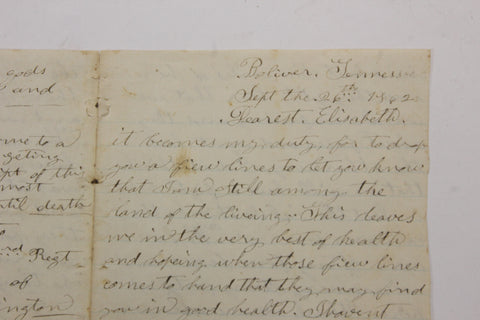 gods
and
me to a
geting
pt of this
most
until death
to
rd Regt
of
ington
Boliver. Tennessee
Sept the 26th 1862
Dearest. Elisabeth.
it becomes my duty, for to drop
you a fiew lines to let you know
that I am Still among the
land of the liveing. This leaves
me in the very best of health
and hopeing when those fiew lines
comes to hand that they may find
you in good health. I havent